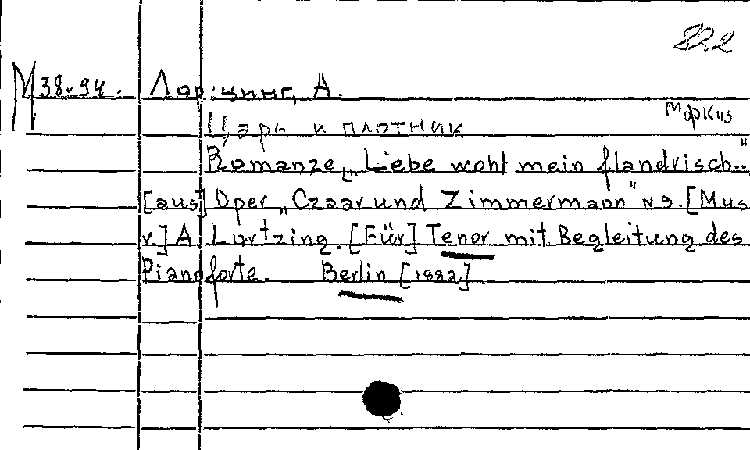 М 38-94. Лорцинг, А.
Маркиз
Царь и плотник
Romanze „Liebe wohl mein flandrisch..."
[aus] Oper „Czaar und Zimmermann" N 9. [Mus.
v.] A. Lortzing. [Für] Tenor mit Begleitung des
Pianoforte. Berlin